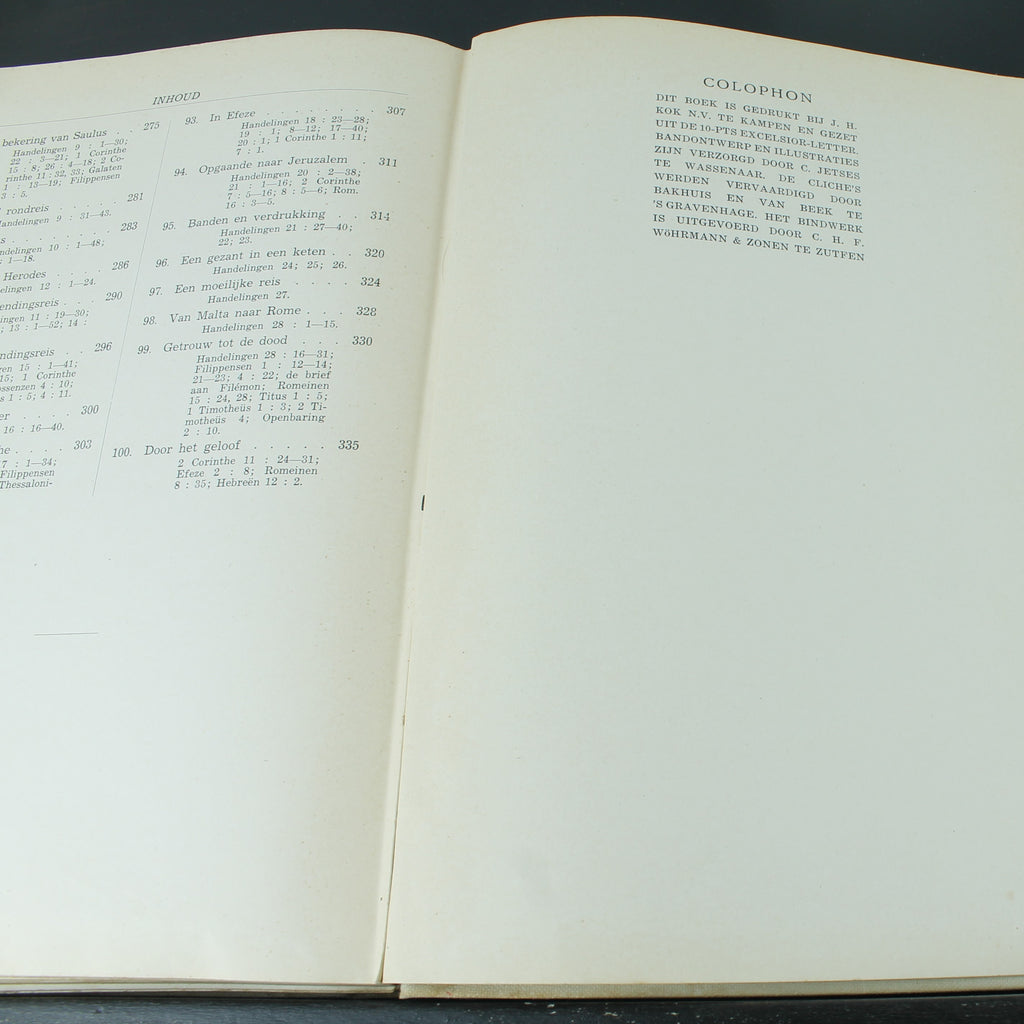 INHOUD
bekering van Saulus . . 275
Handelingen 9 : 1—30;
22 : 3—21; 1 Corinthe
15 : 8; 26 : 4—18; 2 Co-
rinthe 11 : 32, 33; Galaten
1 : 13—19; Filippensen
3 : 5.
rondreis . . . . . . 281
Handelingen 9 : 31—43.
. . . . . . . 283
Handelingen 10 : 1—48;
: 1—18.
Herodes . . . . 286
12 : 1—24.
. . . 290
11 : 19—30;
; 13 : 1—52; 14 :
. . 296
15 : 1—41;
15; 1 Corinthe
4 : 10;
1 : 5; 4 : 11.
. . . . 300
16 : 16—40.
. . . . 303
17 : 1—34;
Filippensen
Thessaloni-
93. In Efeze . . . . . . . . 307
Handelingen 18 : 23—28;
19 : 1; 8—12; 17—40;
20 : 1; 1 Corinthe 1 : 11;
7 : 1.
94. Opgaande naar Jeruzalem . 311
Handelingen 20 : 2—38;
21 : 1—16; 2 Corinthe
7 : 5—16; 8 : 5—6; Rom.
16 : 3—5.
95. Banden en verdrukking . . 314
Handelingen 21 : 27—40;
22; 23.
96. Een gezant in een keten . . 320
Handelingen 24; 25; 26.
97. Een moeilijke reis . . . . 324
Handelingen 27.
98. Van Malta naar Rome . . . 328
Handelingen 28 : 1—15.
99. Getrouw tot de dood . . . 330
Handelingen 28 : 16—31;
Filippensen 1 : 12—14;
21—23; 4 : 22; de brief
aan Filémon; Romeinen
15 : 24, 28; Titus 1 : 5;
1 Timotheüs 1 : 3; 2 Ti-
motheüs 4; Openbaring
2 : 10.
100. Door het geloof . . . . . 335
2 Corinthe 11 : 24—31;
Efeze 2 : 8; Romeinen
8 : 35; Hebreën 12 : 2.
COLOPHON
DIT BOEK IS GEDRUKT BIJ J. H.
KOK N.V. TE KAMPEN EN GEZET
UIT DE 10-PTS EXCELSIOR-LETTER.
BANDONTWERP EN ILLUSTRATIES
ZIJN VERZORGD DOOR C. JETSES
TE WASSENAAR. DE CLICHE'S
WERDEN VERVAARDIGD DOOR
BAKHUIS EN VAN BEEK TE
'S GRAVENHAGE. HET BINDWERK
IS UITGEVOERD DOOR C. H. F.
WöHRMANN & ZONEN TE ZUTFEN